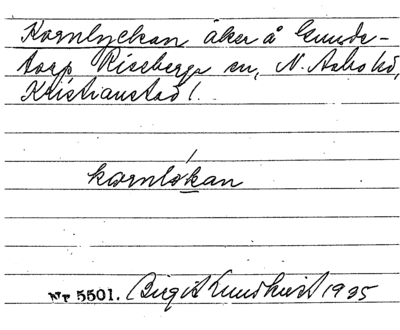 Kornlyckan åker å Gunds-
torp Riseberga sn, N. Åsbo hd,
Kristianstad l.
kornlo̱kan
Nr 5501. Birgit Lundkvist 1935